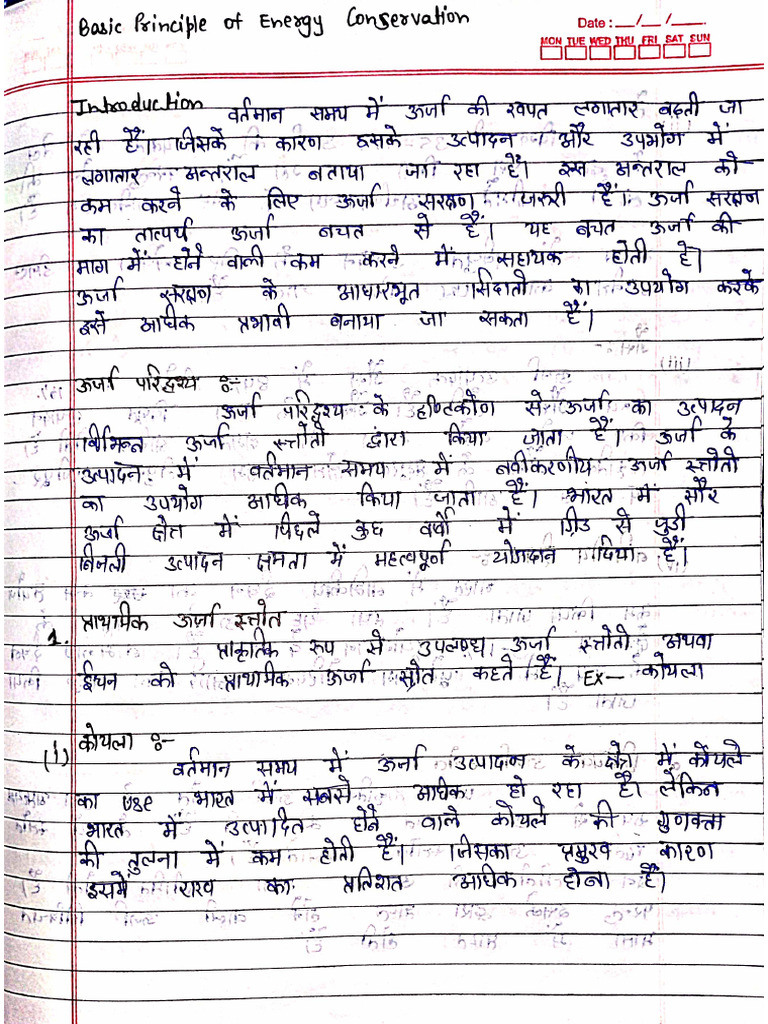 Basic Principle of Energy Conservation
Date : __/__/____
MON TUE WED THU FRI SAT SUN
Introduction वर्तमान समय में ऊर्जा की खपत लगातार बढ़ती जा
रही हैं। जिसके कारण इसके उत्पादन और उपभोग में
लगातार अन्तराल बताया जा रहा हैं। इस अन्तराल को
कम करने के लिए ऊर्जा सरक्षण जरुरी हैं। ऊर्जा सरक्षण
का तात्पर्य ऊर्जा बचत से हैं। यह बचत ऊर्जा की
माग में होने वाली कम करने में सहायक होती है।
ऊर्जा संरक्षण के आधारभूत सिदातो का उपयोग करके
इसे अधिक प्रभावी बनाया जा सकता हैं।
ऊर्जा परिदृश्य :-
ऊर्जा परिदृश्य के दृष्टिकोण से ऊर्जा का उत्पादन
विभिन्न ऊर्जा स्त्तोतो द्वारा किया जाता हैं। ऊर्जा के
उत्पादन में वर्तमान समय में नवीकरणीय ऊर्जा स्त्तोतो
का उपयोग अधिक किया जाता हैं। भारत में सौर
ऊर्जा क्षेत्त में पिछले कुछ वर्षो में ग्रिड से जुडी
बिजली उत्पादन क्षमता में महत्वपूर्ण योगदान दिया हैं।
1. प्राथमिक ऊर्जा स्त्तोत
प्राकृतिक रूप से उपलब्ध ऊर्जा स्त्तोतो अथवा
ईधन को प्राथमिक ऊर्जा स्रोत कहते हैं। Ex- कोयला
(i) कोयला :-
वर्तमान समय में ऊर्जा उत्पादन के क्षेत्त में कोयले
का use भारत में सबसे अधिक हो रहा है। लेकिन
भारत में उत्पादित होने वाले कोयले की गुणवत्ता
की तुलना में कम होती हैं। जिसका प्रमुख कारण
इसमें राख का प्रतिशत अधिक होना हैं।